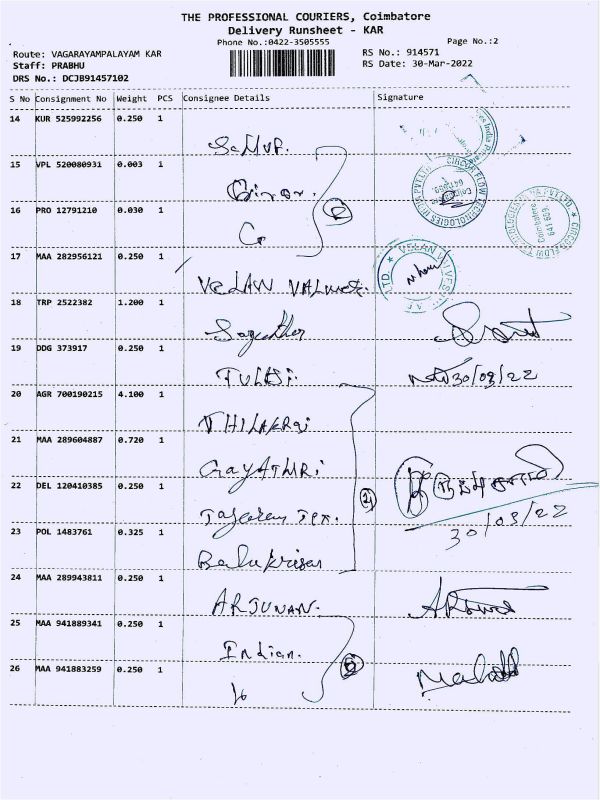 THE PROFESSIONAL COURIERS, Coimbatore
Delivery Runsheet - KAR
Phone No.:0422-3505555
Page No.:2
Route: VAGARAYAMPALAYAM KAR
RS No.: 914571
Staff: PRABHU
RS Date: 30-Mar-2022
DRS No.: DCJB91457102
S No Consignment No Weight PCS Consignee Details Signature
14 KUR 525992256 0.250 1
15 VPL 520080931 0.003 1
16 PRO 12791210 0.030 1
17 MAA 282956121 0.250 1
VELAN
18 TRP 2522382 1.200 1
19 DDG 373917 0.250 1
TULASI 30/03/22
20 AGR 700190215 4.100 1
THILAKRAJ
21 MAA 289604887 0.720 1
GAYATHRI
22 DEL 120410385 0.250 1
30/03/22
23 POL 1483761 0.325 1
Balakrisan
24 MAA 289943811 0.250 1
ARJUNAN.
25 MAA 941889341 0.250 1
Indian.
26 MAA 941883259 0.250 1